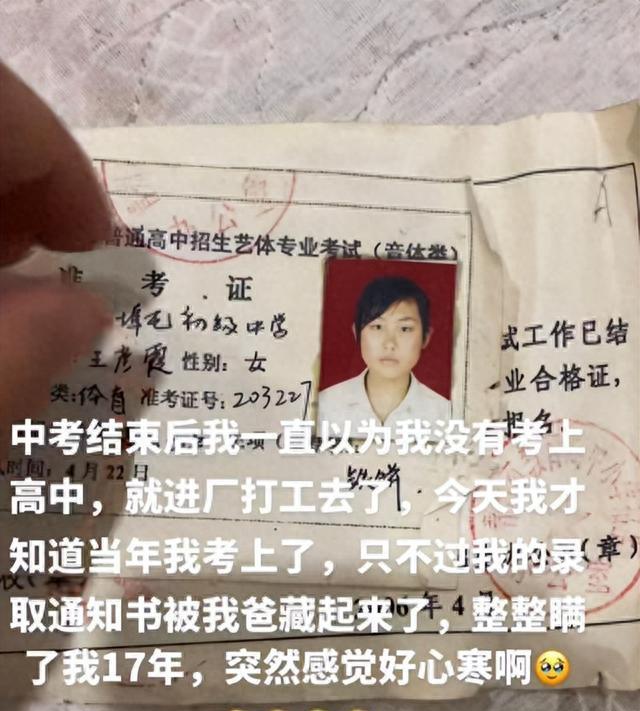 A
普通高中招生艺体专业考试（音体类）
准考证
埠屯初级中学
王彦霞 性别：女
类：体育 准考证号：203227
式工作已结
业合格证，
报名
时间：4月22日
铅球
（章）
2006年4月
中考结束后我一直以为我没有考上
高中，就进厂打工去了，今天我才
知道当年我考上了，只不过我的录
取通知书被我爸藏起来了，整整瞒
了我17年，突然感觉好心寒啊🥹